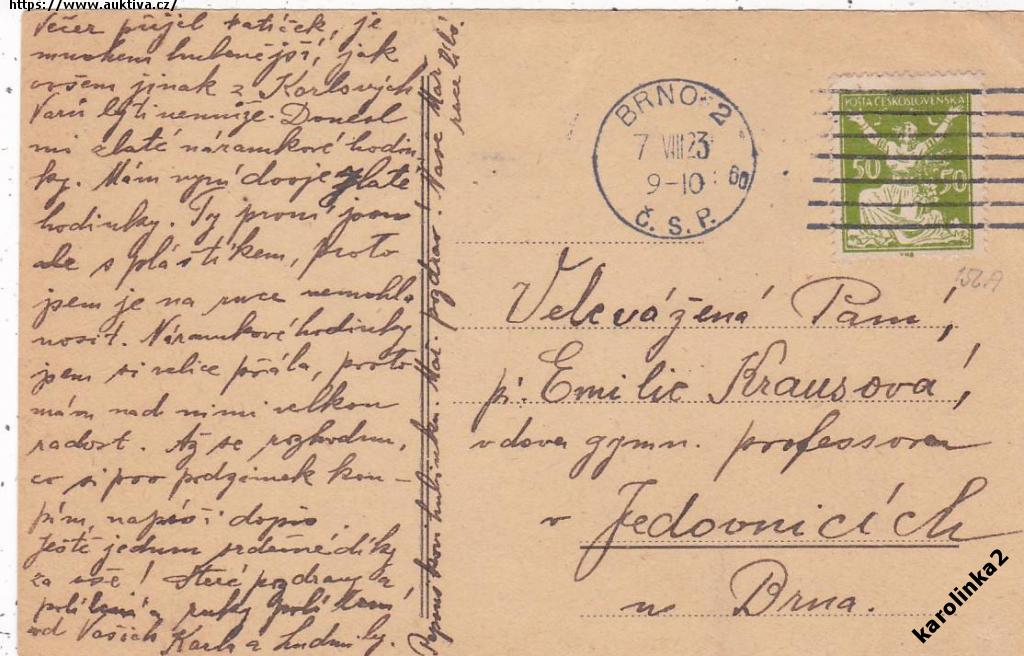 https://www.auktiva.cz/
Večer přijel tatíček, je
mnohem hubenější, jak
ovšem jinak z Karlových
Varů býti nemůže. Donesl
mi zlaté náramkové hodin
ky. Mám nyní dvoje zlaté
hodinky. Ty první jsou
ale s pláštíkem, proto
jsem je na ruce nemohla
nosit. Náramkové hodinky
jsem si velice přála, proto
mám nad nimi velkou
radost. Až se rozhodnu,
co si pro podzimek kou-
pím, napíši dopis.
Ještě jednou srdečné díky
za vše! Uctivé pozdravy a
políbení ruky
od Vašich Karla a Ludmily.
pozdrav! Vaše
ruce líbá
BRNO 2
7 VIII 23
9-10
6d
Č.S.P.
POŠTA ČESKOSLOVENSKÁ
50 50
152A
Velevážená Paní,
pí. Emilie Krausová,
vdova gymn. professora
v Jedovnicích
u Brna.
karolinka2